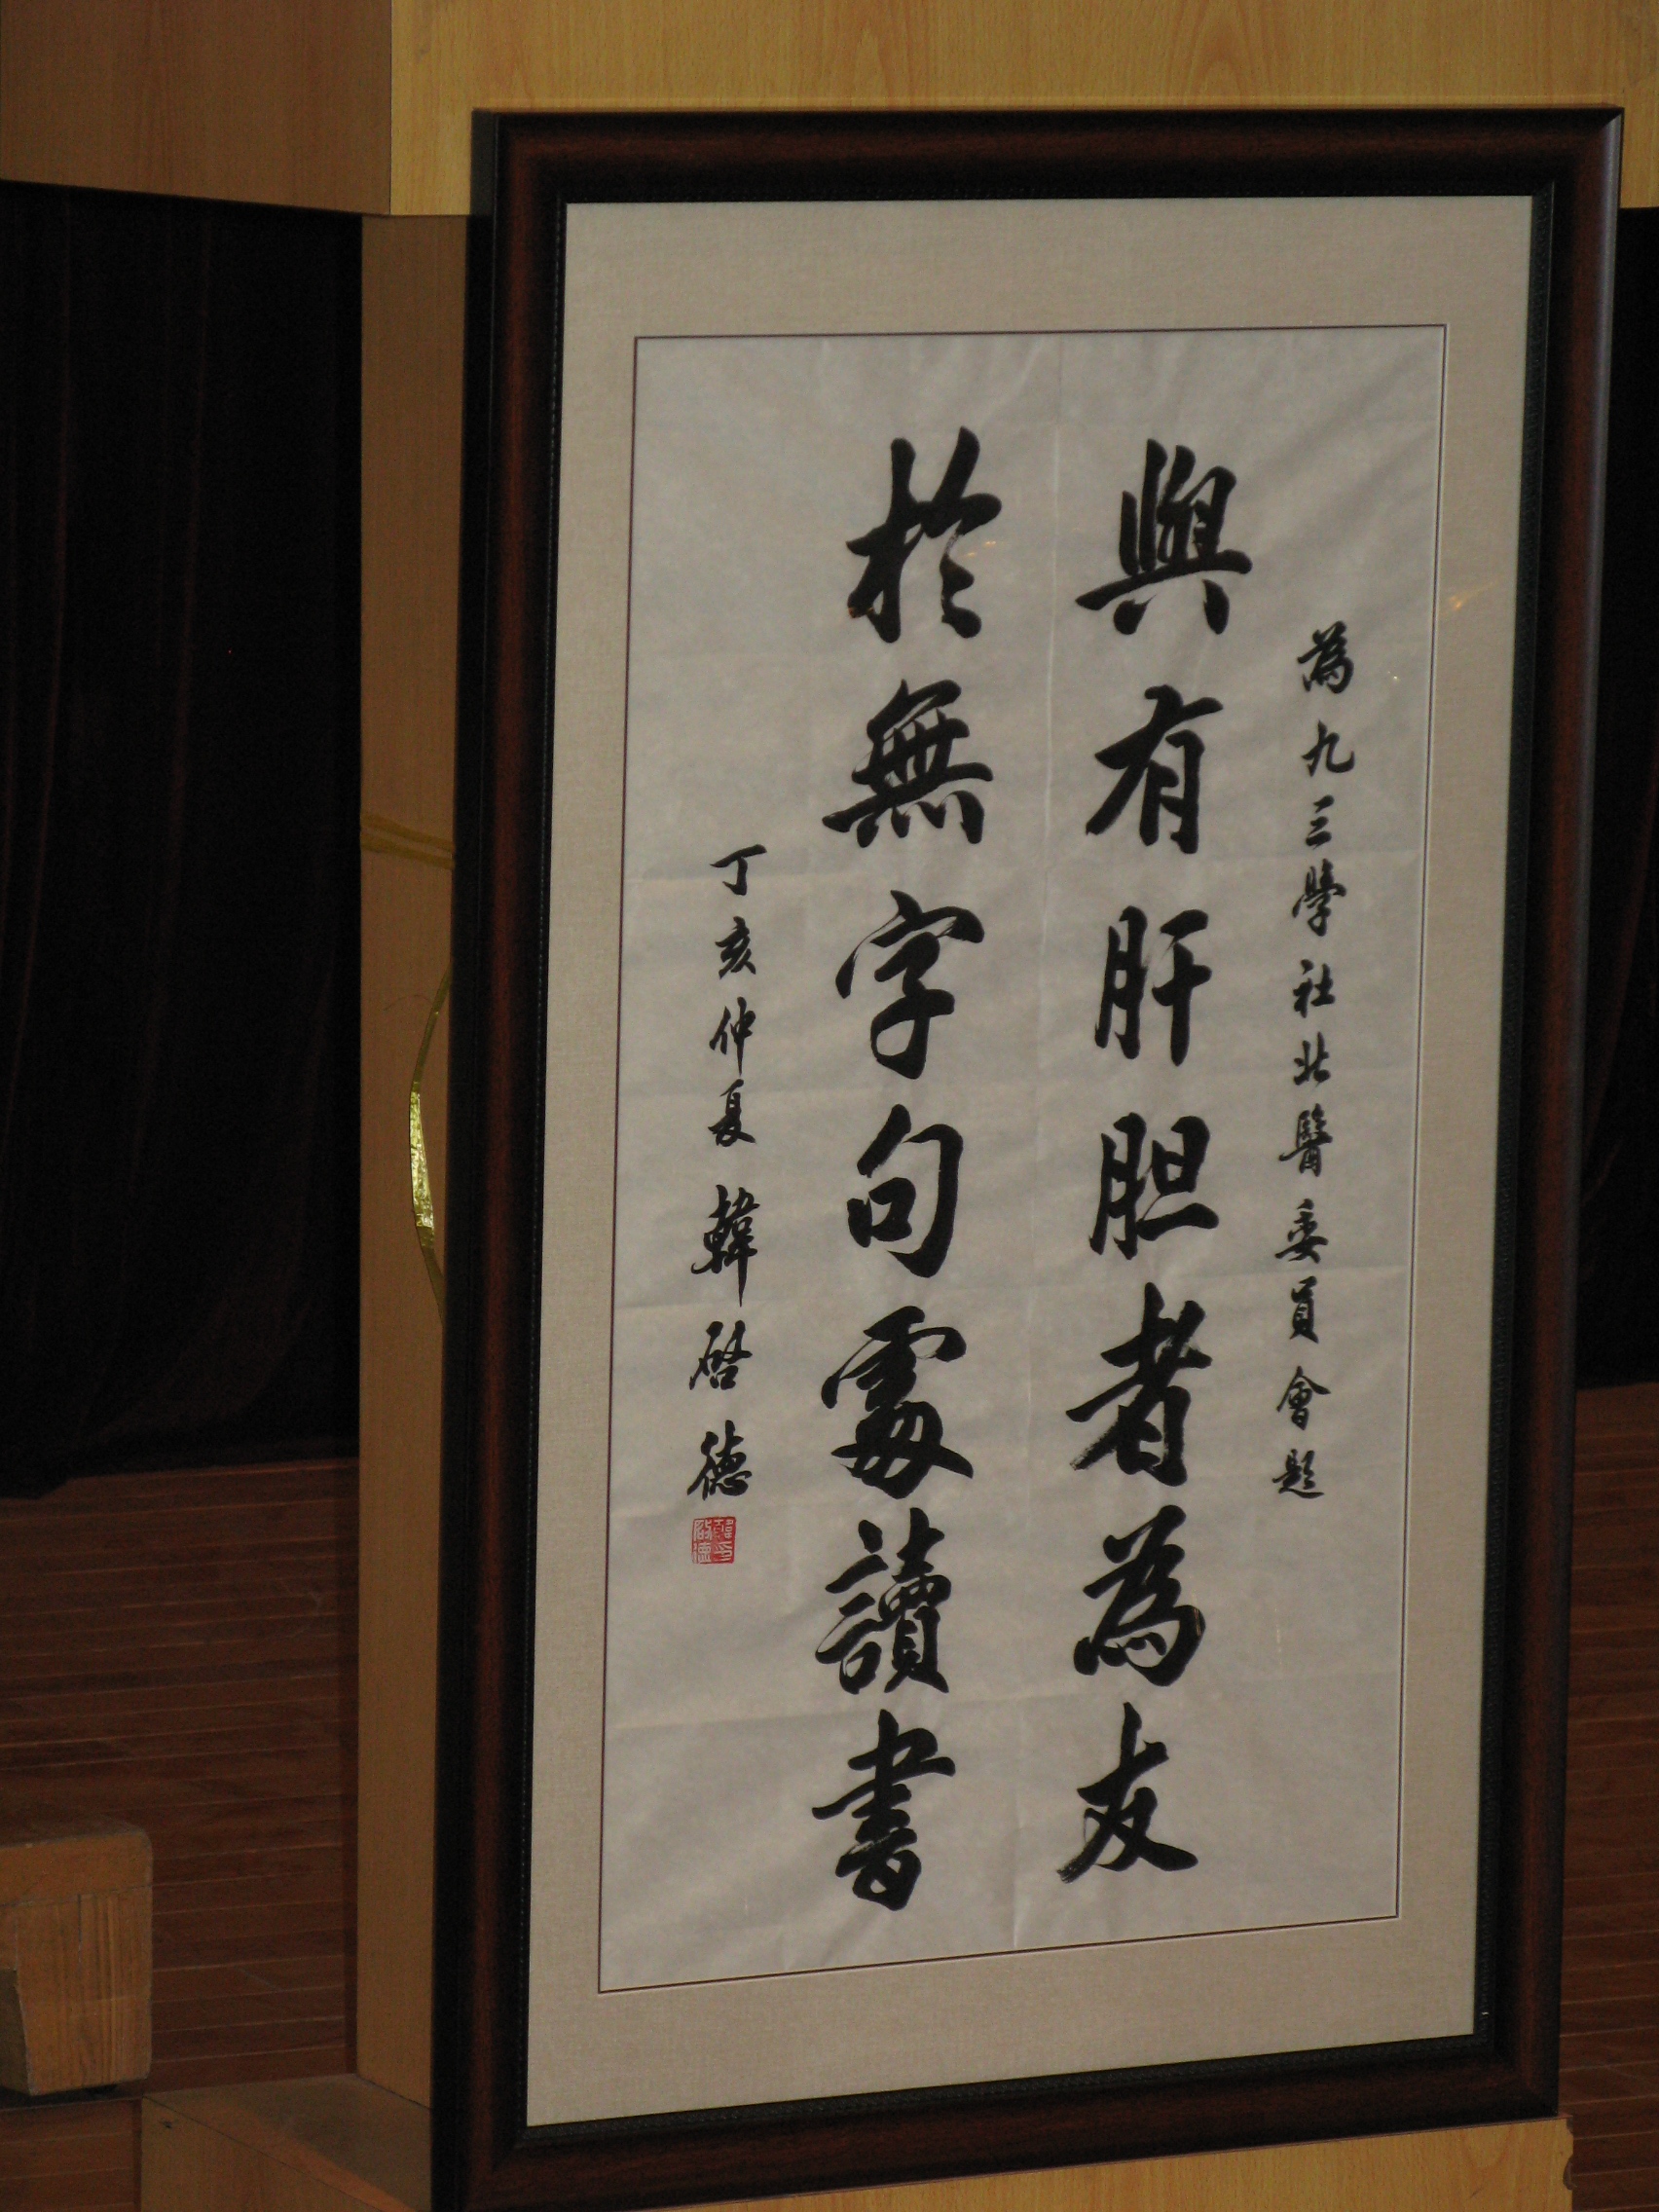 為九三學社北醫委員會題
與有肝胆者為友
於無字句處讀書
丁亥仲夏 韓啓德
韓啟德印